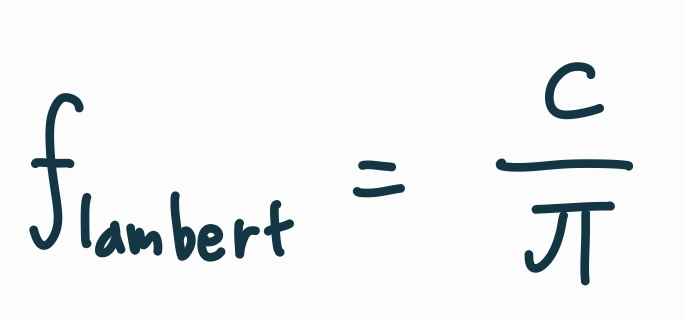 f_lambert = c/π